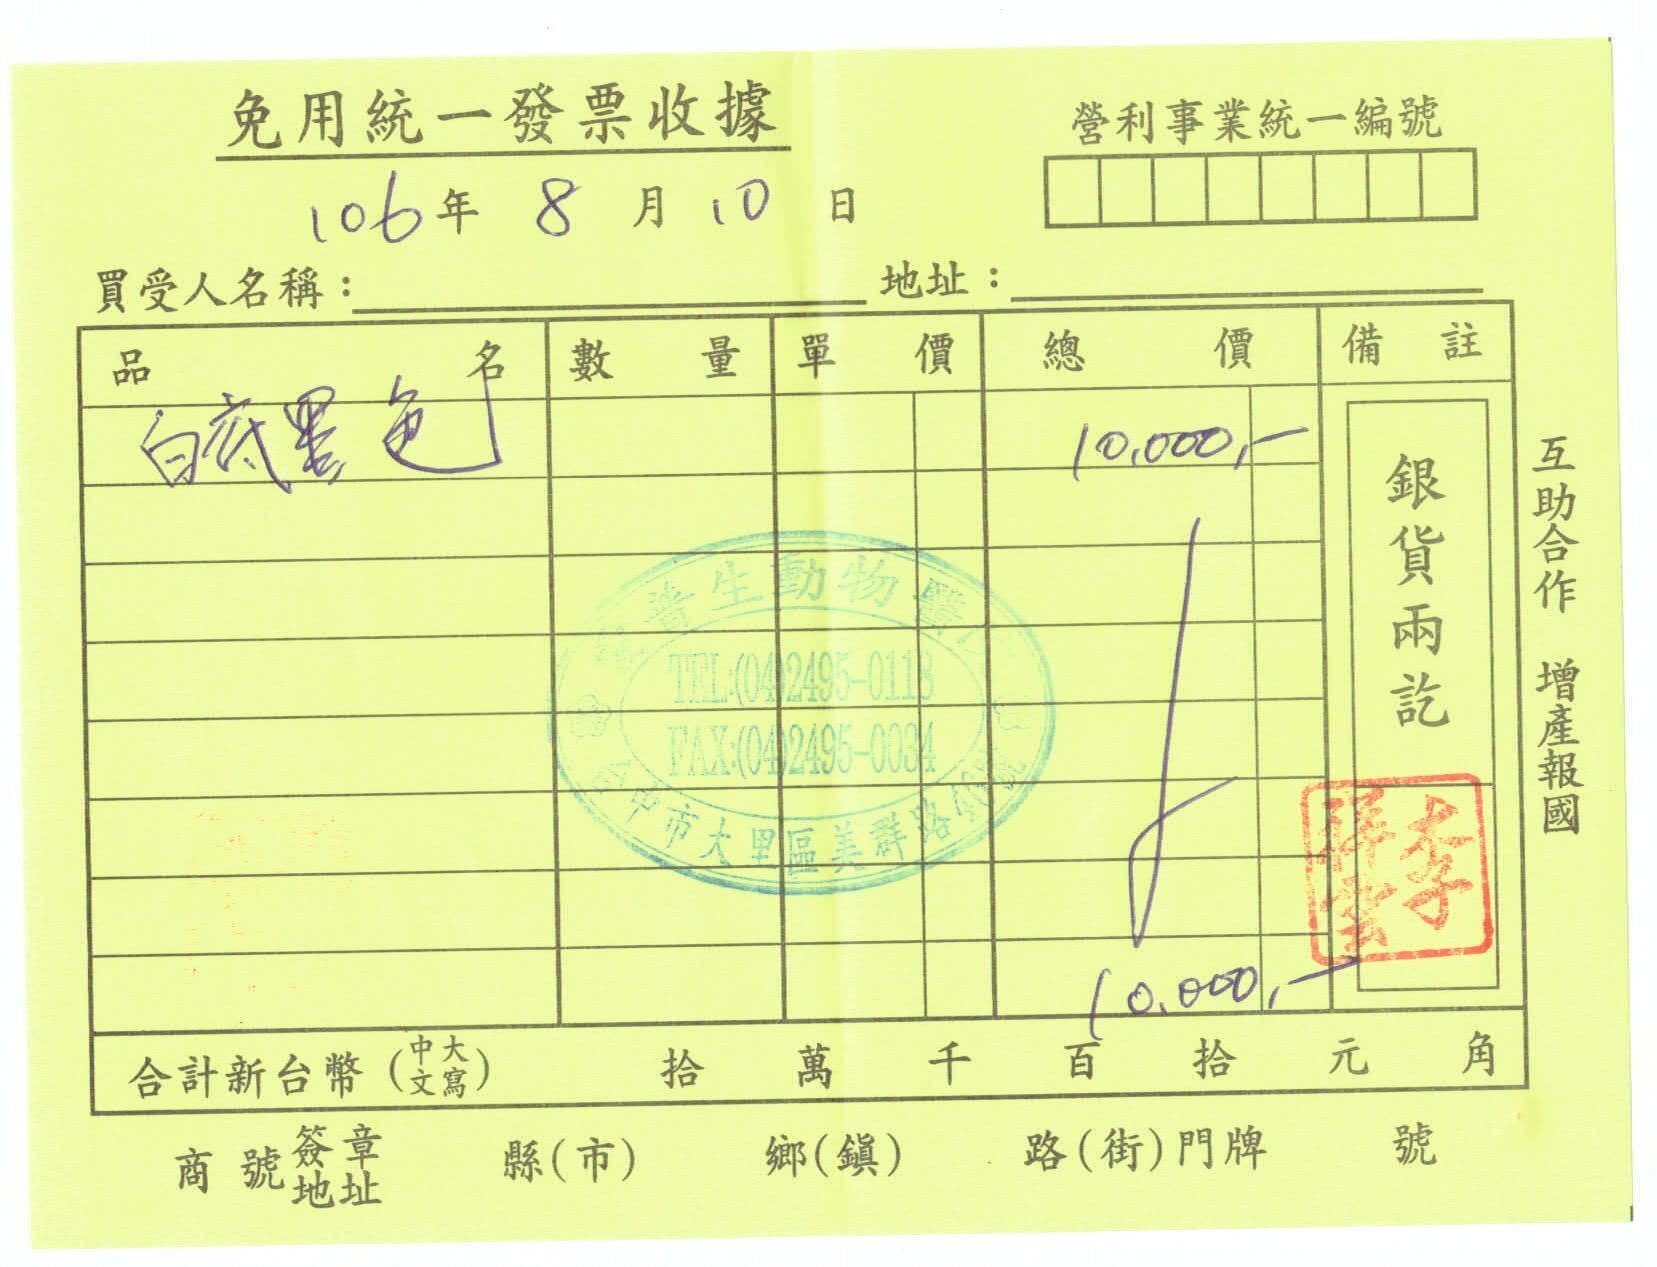 免用統一發票收據
營利事業統一編號
106年 8月 10日
買受人名稱： 地址：
品名 數量 單價 總價 備註
白底黑色 10,000,-
銀貨兩訖
互助合作 增產報國
普生動物醫
TEL:(04)2495-0118
FAX:(04)2495-0034
中市大里區美群路
李
祥雲
10,000,-
合計新台幣(中文大寫) 拾 萬 千 百 拾 元 角
商號簽章地址 縣(市) 鄉(鎮) 路(街)門牌 號